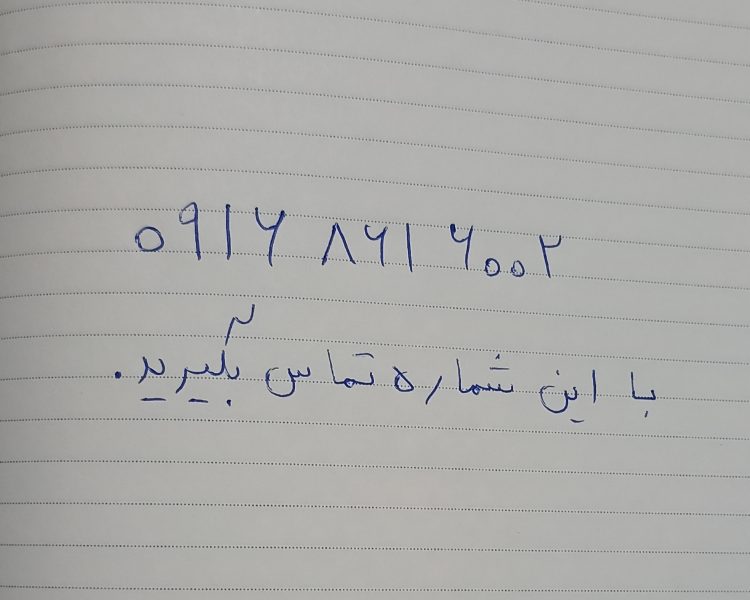 ۰۹۱۶ ۸۶۱ ۶۰۰۲
با این شماره تماس بگیرید.